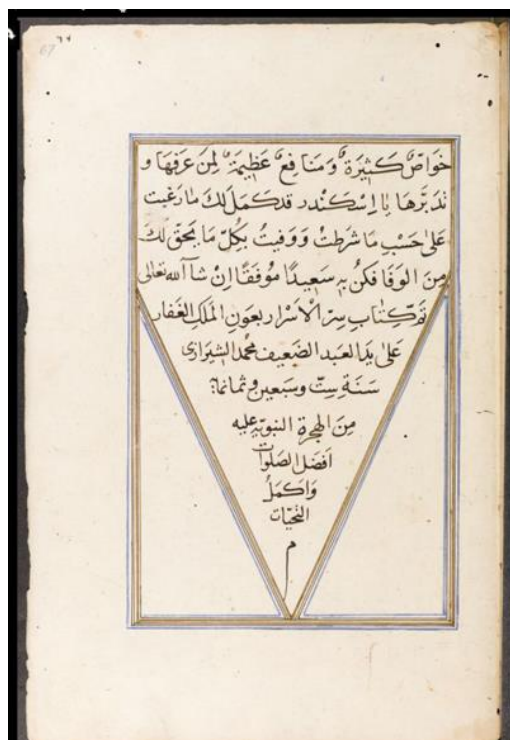 ٦٧
67
خَوَاصّ كَثِيرَة وَمَنَافِع عَظِيمَة لِمَن عَرَفَهَا و
تَدَبَّرَهَا يَا اِسْكَندر قد كَمَلَ لَكَ مَا رَغبت
عَلى حَسْبِ مَا شَرَطتُ وَوَفيتُ بِكُلّ مَا يَحقّ لكَ
مِنَ الوَفَا فكُن بِهِ سَعِيدًا مُوَفقًا اِنْ شآ الله تعالى
تمّ كِتَاب سِرّ الاَسْرَار بعَونِ المَلكِ الغفار
عَلى يَد العَبد الضَعِيف محمد الشيرازى
سَنَة سِتّ وسَبعين وثمانمائة
مِنَ الهِجرة النبويّة عليه
اَفضَل الصَلوات
وَاَكمَلُ
التحيّات
م